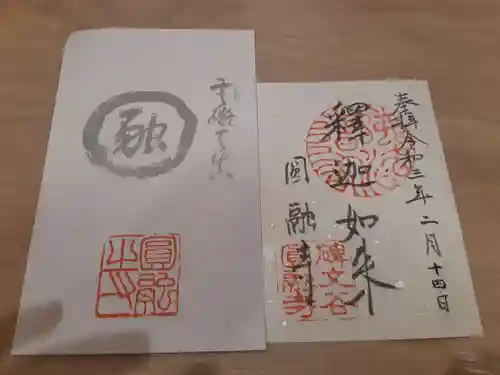 奉拝 令和三年二月十四日
釋迦如来
圓融寺
碑文谷
圓融寺
融
圓融
之印